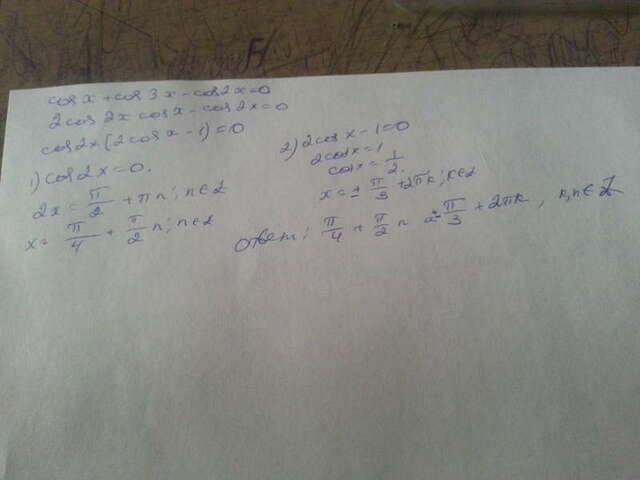 cos x + cos 3x - cos 2x = 0
2 cos 2x cos x - cos 2x = 0
cos 2x (2 cos x - 1) = 0
1) cos 2x = 0.
2x = π/2 + πn; n∈Z
x = π/4 + π/2 n; n∈Z
2) 2 cos x - 1 = 0
2 cos x = 1
cos x = 1/2.
x = ± π/3 + 2πk; k∈Z
Ответ: π/4 + π/2 n ± π/3 + 2πk, k, n ∈ Z